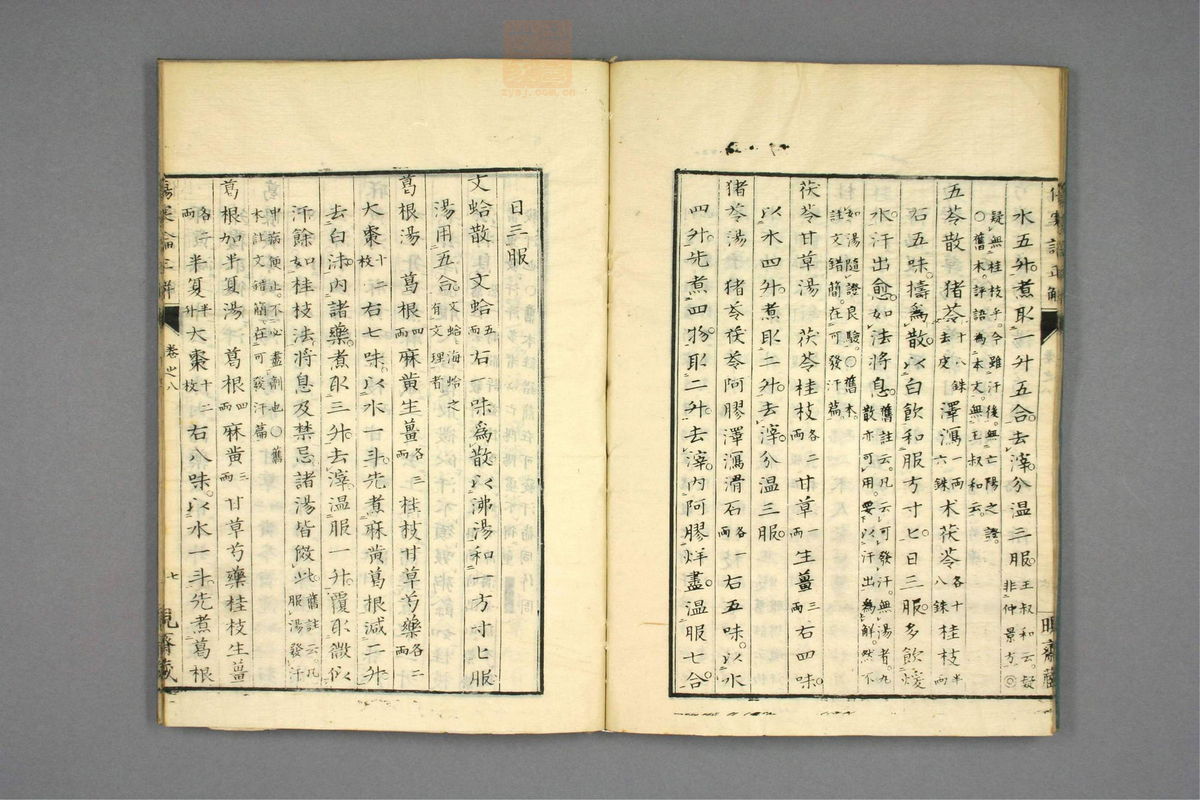 水五升。煮取一升五合。去滓。分温三服。王叔和云。疑非仲景方。◎
疑無桂枝乎。今雖汗後。無亡陽之證。○舊本。評語爲本文。無王叔和云。
五苓散 猪苓十八銖去皮 澤瀉一兩六銖 朮茯苓各十八銖 桂枝半兩
右五味。擣爲散。以白飲和服方寸匕。日三服。多飲煖
水。汗出愈。如法將息。舊註云。凡云可發汗。無湯者。丸散亦可用。要以汗出爲解。然不
如湯隨證良驗。○舊本。註文錯簡。在可發汗篇。
茯苓甘草湯 茯苓桂枝各二兩 甘草一兩 生薑三兩 右四味。
以水四升。煮取二升。去滓。分温三服。
猪苓湯 猪苓茯苓阿膠澤瀉滑石各一兩 右五味。以水
四升。先煮四物。取二升。去滓。内阿膠烊盡。温服七合。
日三服。
文蛤散 文蛤五兩 右一味。爲散。以沸湯和一方寸匕服。
湯用五合。文蛤。海蛤之有文理者。
葛根湯 葛根四兩 麻黄生薑各三兩 桂枝甘草芍藥各二兩
大棗十二枚 右七味。以水一斗。先煮麻黄葛根。減二升。
去白沫。内諸藥。煮取三升。去滓。温服一升。覆取微似
汗。餘如桂枝法將息及禁忌。諸湯皆倣此。舊註云。凡服湯發汗
中病便止。不必盡劑也。○舊本註文錯簡。在可發汗篇。
葛根加半夏湯 葛根四兩 麻黄三兩 甘草芍藥桂枝生薑
各二兩 半夏半升 大棗十二枚 右八味。以水一斗。先煮葛根
卷之八
七